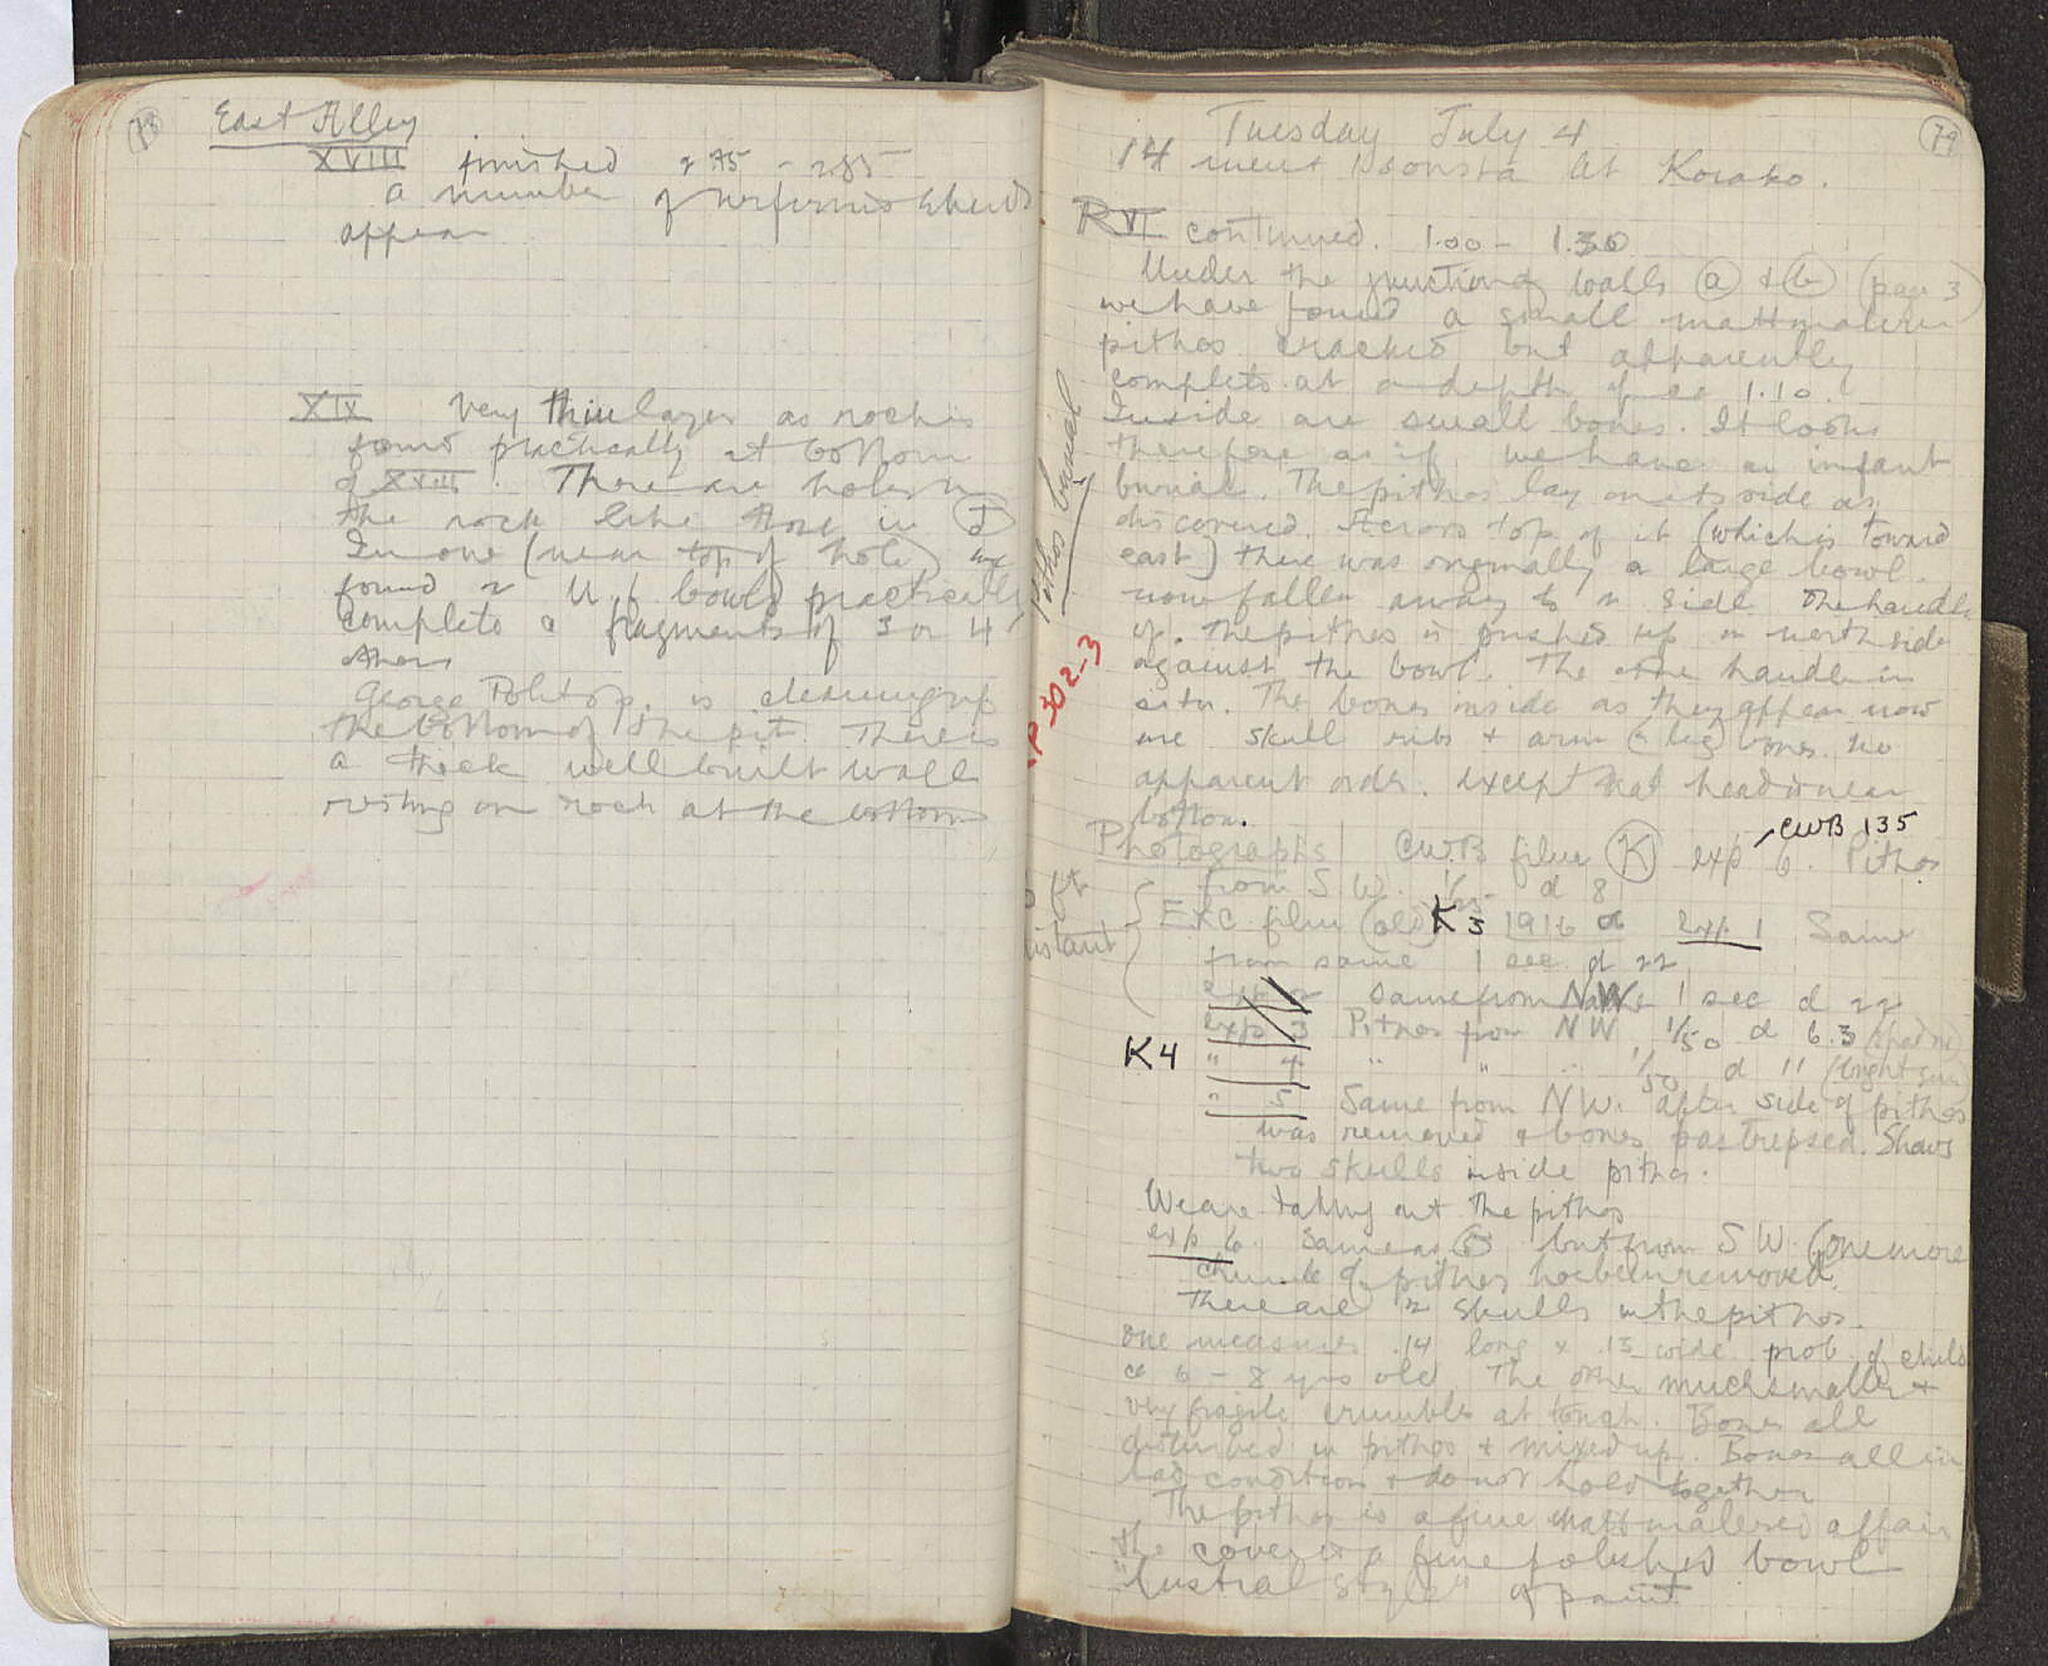 East Alley
XVIII finished 2.75 - 2.85
a number of Urfirnis sherds
appear
XIX Very thin layer as rock is
found practically at bottom
of XVIII. There are holes in
the rock like those in J
In one (near top of hole) we
found 2 U.f. bowls practically
complete & fragments of 3 or 4
others
George Polit op. is cleaning up
the bottom of the pit. There is
a thick well built wall
resting on rock at the bottom
79
Tuesday July 4
14 men at Korako.
R VI continued. 1.00 - 1.30
Under the junction of walls a & b (page 3)
we have found a small mattmalerei
pithos cracked but apparently
complete at a depth of ca 1.10.
Inside are small bones. It looks
therefore as if we have an infant
burial. The pithos lay on its side as
discovered. Across top of it (which is toward
east) there was originally a large bowl.
now fallen away to a side The handle
of. The pithos is pushed up on north side
against the bowl. The one handle in
situ. The bones inside as they appear now
are skull ribs & arm (& leg) bones. no
apparent order. except that head is near
bottom.
Pithos burial
P 302-3
CWB 135
Photographs CWB film K exp 6. Pithos
from S W. 1/25 d 8
ft
distant
Exc film (old) K3 1916 a exp 1 Same
from same 1 sec d 22
exp 2 Same from NW 1 sec d 22
exp 3 Pithos from NW 1/50 d 6.3 (shade)
K4 " 4 " " " 1/50 d 11 (bright sun)
" 5 Same from NW. after side of pithos
was removed & bones. Shows
two skulls inside pithos.
We are taking out the pithos
exp 6. Same as 5 but from S W. (one more
chunk of pithos has been removed.
There are 2 skulls in the pithos.
One measures .14 long & .13 wide prob. of child
ca 6 - 8 yrs old. The other much smaller &
very fragile crumbles at touch. Bones all
disturbed in pithos & mixed up. Bones all in
bad condition & do not hold together
The pithos is a fine mattmalerei affair
the cover is a fine polished bowl
"lustral style" of paint